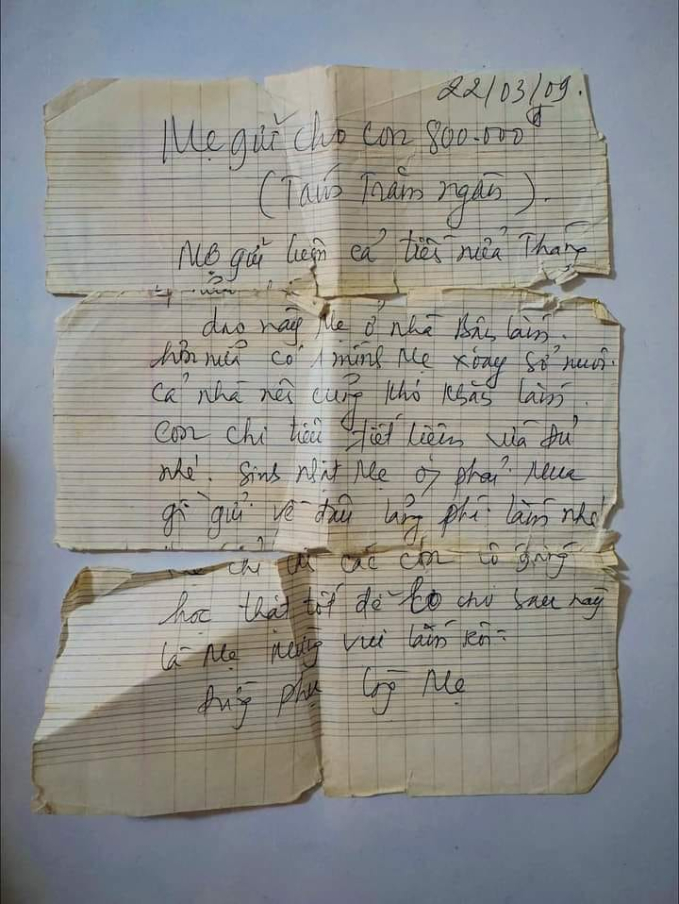 22/03/09.
Mẹ gửi cho con 800.000đ
(Tám Trăm ngàn).
Mẹ gửi luôn cả tiền nửa Tháng
dạo này Mẹ ở nhà Bận lắm.
hơn nữa có 1 mình Mẹ xoay sở nuôi
cả nhà nên cũng khó khăn lắm.
con chi tiêu tiết kiệm vừa đủ
nhé. Sinh nhật Mẹ phải Mua
gì gửi về đâu lãng phí lắm nhé
chỉ các con cố gắng
học thật tốt để cho sau này
là Mẹ Mừng vui lắm rồi
đừng phụ lòng Mẹ